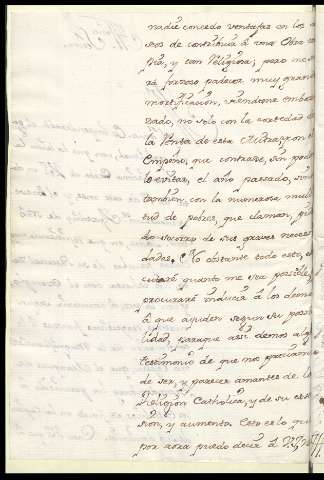 nadie concedo ventajas en los de-
seos de contribuir à una Obra tan
Pia, y tan Religiosa; pero me se-
rá forzoso padecer muy grande
mortificacion, viendome embara-
zado, no solo con la cortedad de
la Renta de esta Mitra, y con el
Empeño, que contraxe, sin poder-
lo evitar, el año passado, sino
tambien con la numerosa multi-
tud de pobres, que claman, pidien-
do socorro de sus graves necesi-
dades. No obstante todo esto, exe-
cutaré quanto me sea possible, y
procuraré inducir à los demas
à que ayuden segun su possibi-
lidad, paraque assi demos algun
testimonio de que nos preciamos
de ser, y parecer amantes de la
Religion Catholica, y de su exten-
sion, y aumento. Esto es lo que
por aora puedo decir à